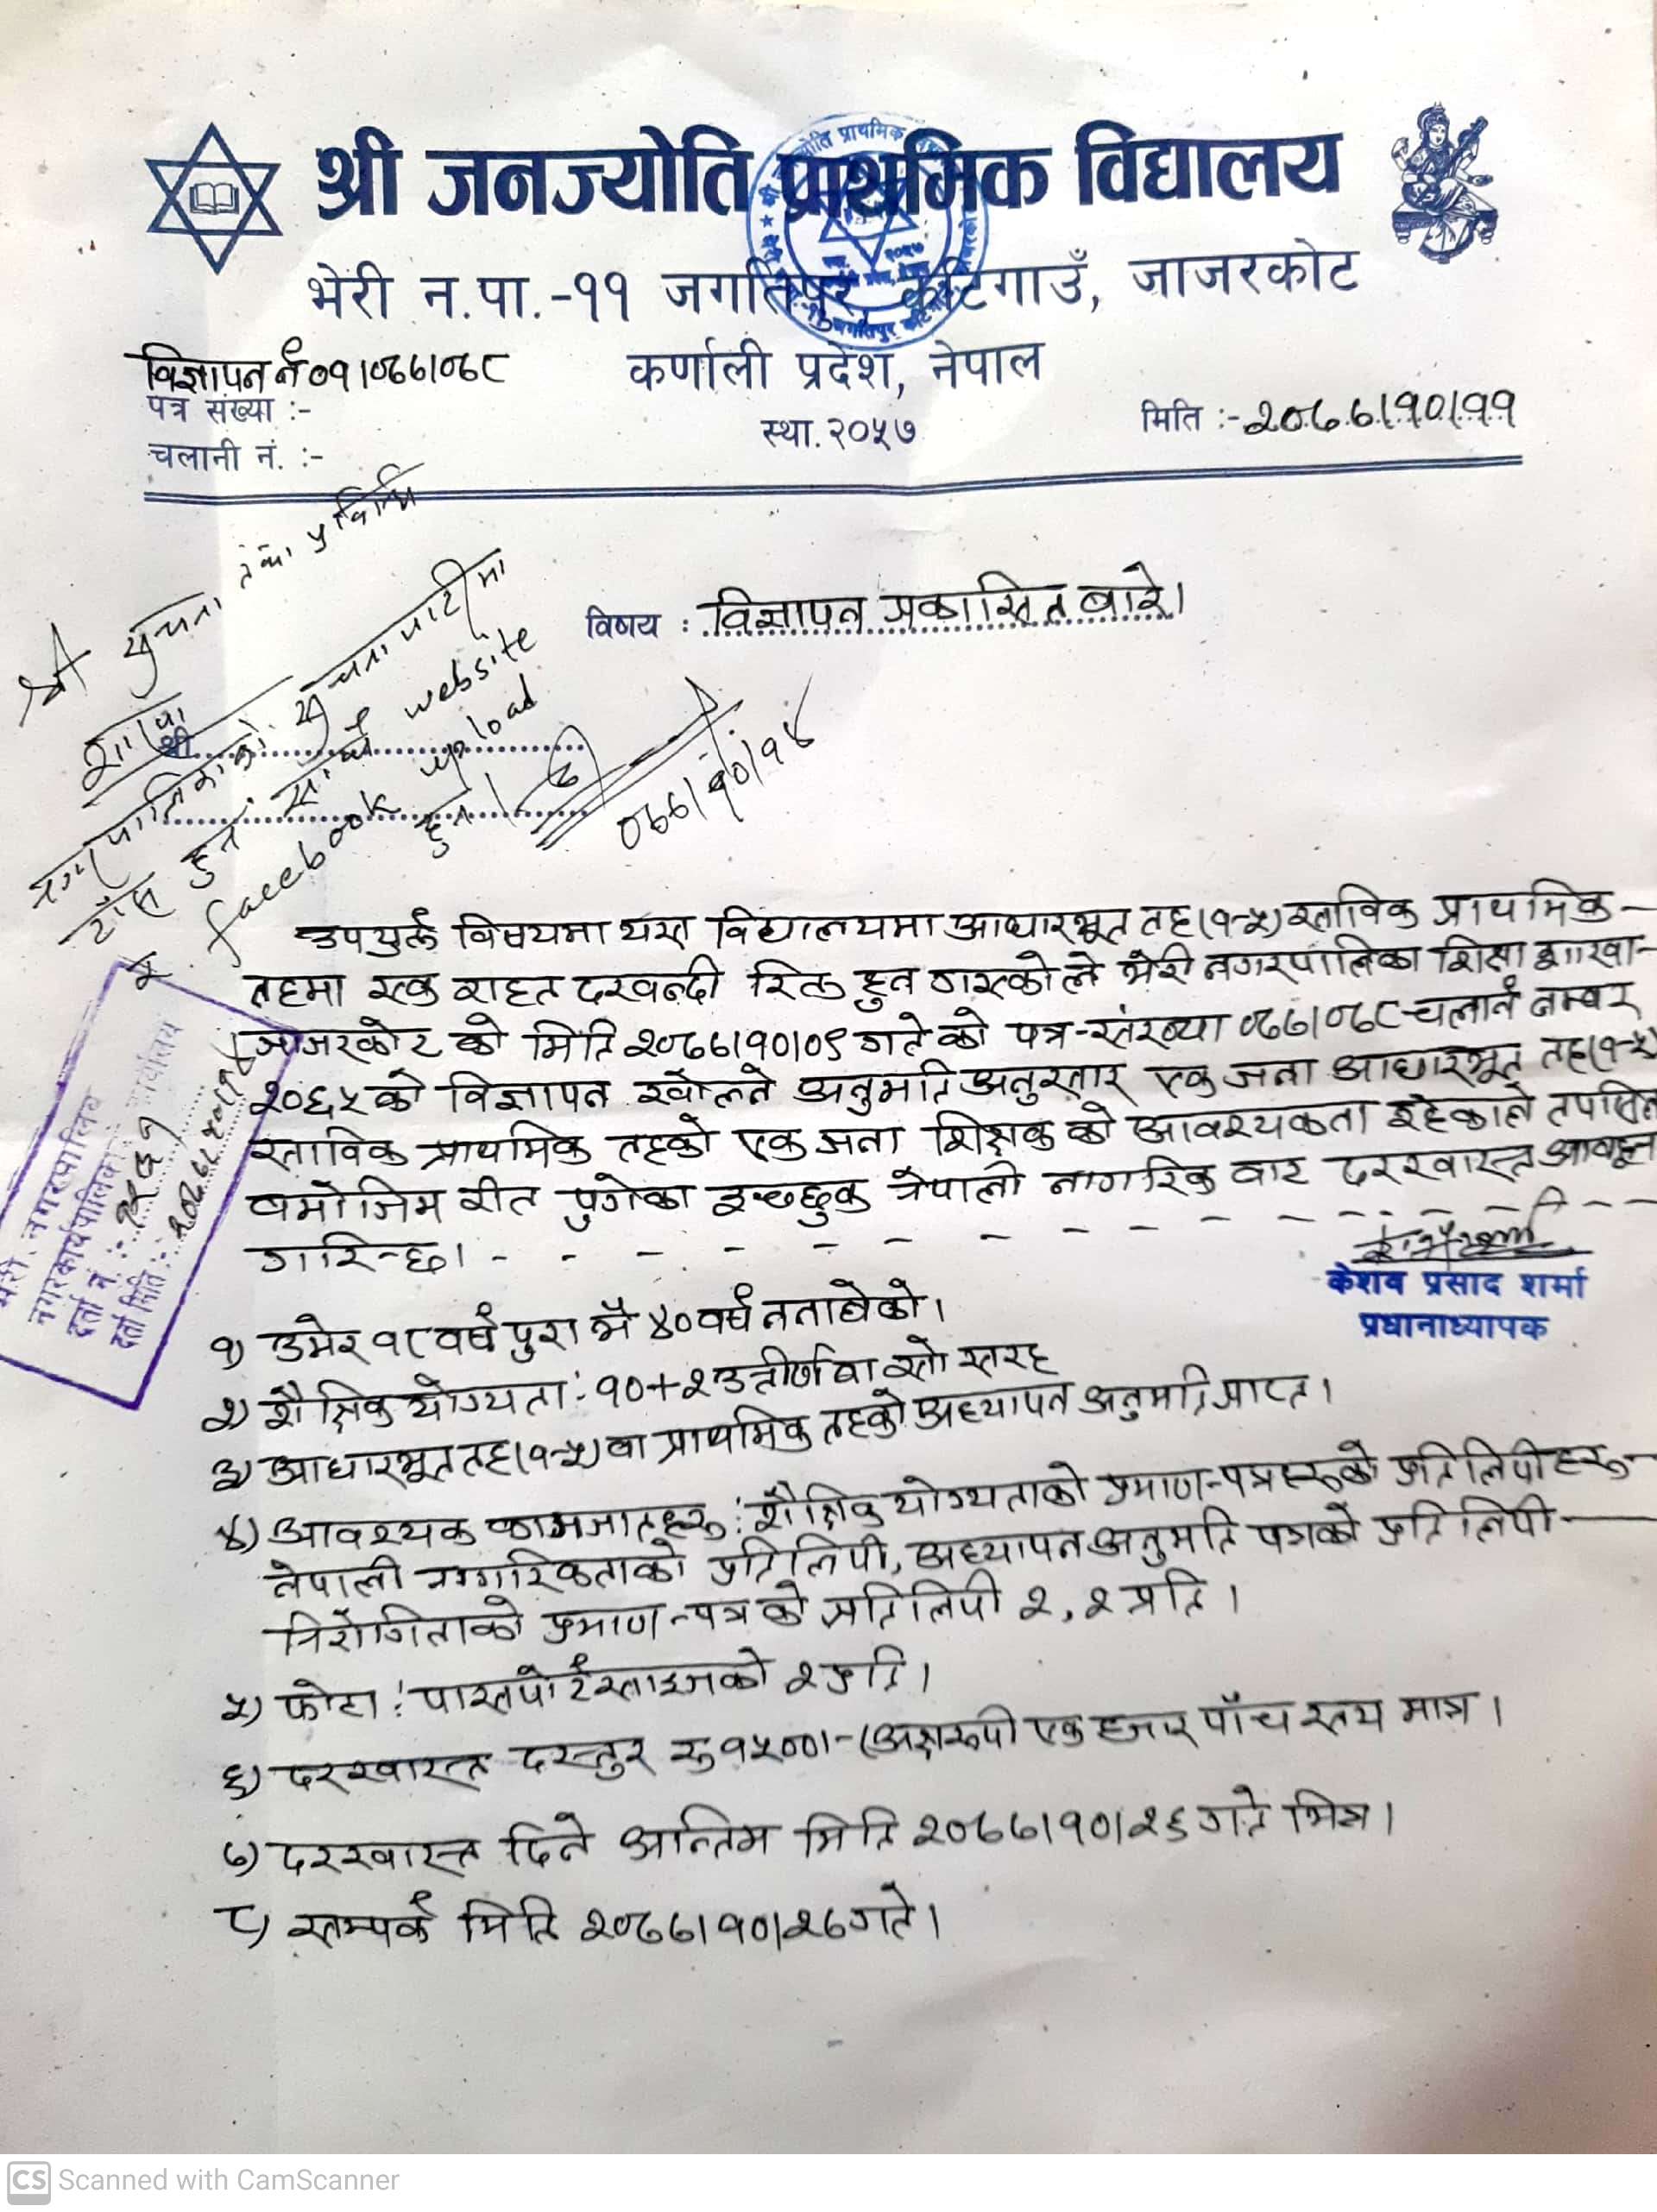 श्री जनज्योति प्राथमिक विद्यालय
भेरी न.पा.-११ जगतिपुर कटिगाउँ, जाजरकोट
विज्ञापन नं ०१।०७७।०७८
कर्णाली प्रदेश, नेपाल
पत्र संख्या :-
स्था. २०५७
मिति :- २०७७।१०।११
चलानी नं. :-
श्री सूचना तथा प्रविधि
शाखा
नगरपालिकाको सूचनापाटीमा
टाँस हुन साथै website
र facebook upload
हुन।
०७७।१०।१४
विषय : विज्ञापन प्रकासित बारे।
श्री
उपयुर्त्त विषयमा यस विद्यालयमा आधारभूत तह(१-५) साविक प्राथमिक
तहमा एक राहत दरवन्दी रित्त हुन गएकोले भेरी नगरपालिका शिक्षा शाखा
जाजरकोट को मिति २०७७।१०।०९ गते को पत्र-संख्या ०७७।०७८ चलानी नम्बर
२०६५को विज्ञापन खोल्ने अनुमति अनुसार एक जना आधारभूत तह(१-५)
साविक प्राथमिक तहको एक जना शिक्षक को आवश्यकता रहेकाले तपसिल
बमोजिम रीत पुगेका इच्छुक नेपाली नागरिक वाट दरखास्त आवहन
गरिन्छ।
केशव प्रसाद शर्मा
प्रधानाध्यापक
१) उमेर १८ वर्ष पुरा भै ४० वर्ष ननाघेको।
२) शैक्षिक योग्यता : १०+२ उत्तीर्ण वा सो सरह
३) आधारभूत तह(१-५) वा प्राथमिक तहको अध्यापन अनुमति प्राप्त।
४) आवश्यक कागजातहरु : शैक्षिक योग्यताको प्रमाण-पत्रहरुको प्रतिलिपीहरु
नेपाली नागरिकताको प्रतिलिपी, अध्यापन अनुमति पत्रको प्रतिलिपी
निरोगिताको प्रमाण-पत्र को प्रतिलिपी २,२ प्रति।
५) फोटो : पासपोर्ट साइजको २ प्रति।
६) दरखास्त दस्तुर रु १५००।- (अक्षरुपी एक हजार पाँच सय मात्र।
७) दरखास्त दिने अन्तिम मिति २०७७।१०।२६ गते भित्र।
८) सम्पर्क मिति २०७७।१०।२७ गते।
भेरी नगरपालिका
नगरकार्यपालिकाको कार्यालय
दर्ता नं :
दर्ता मिति :
CS Scanned with CamScanner